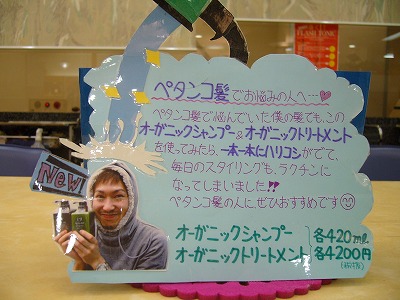 FLASH TONIC
ペタンコ髪でお悩みの人へ…♡
ペタンコ髪で悩んでいた僕の髪でも、この
オーガニックシャンプー&オーガニックトリートメント
を使ってみたら、一本一本にハリコシがでて、
毎日のスタイリングも、ラクチンに
なってしまいました!!
ペタンコ髪の人に、ぜひおすすめです☺
New
オーガニックシャンプー
オーガニックトリートメント
各420mL
各4200円
(税込)